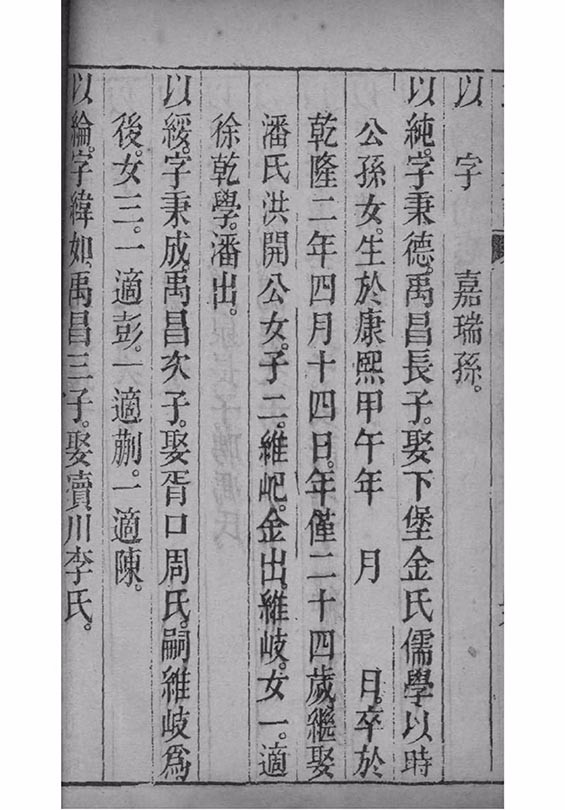 以　字　嘉瑞孫。
以純。字秉德。禹昌長子。娶下堡金氏儒學以時
公孫女。生於康熙甲午年　月　日。卒於
乾隆二年四月十四日。年僅二十四歲。繼娶
潘氏洪開公女。子二。維屺。金出。維岐。女一。適
徐乾學。潘出。
以綏。字秉成。禹昌次子。娶胥口周氏。嗣維岐爲
後。女三。一適彭。一適蒯。一適陳。
以綸。字緯如。禹昌三子。娶賣川李氏。